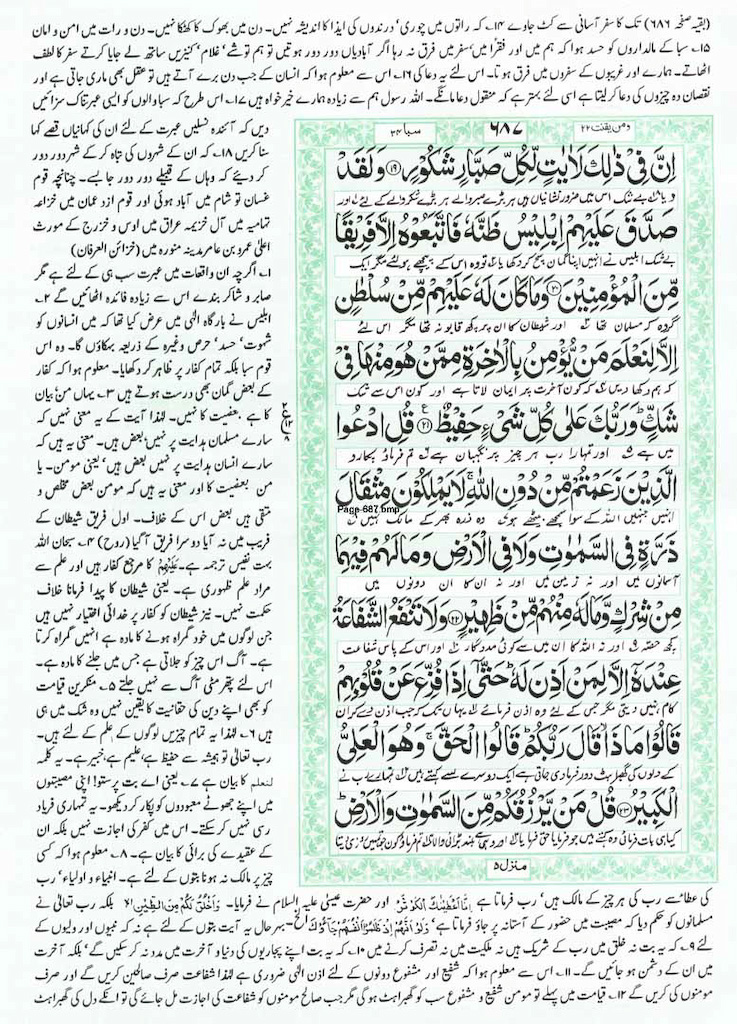 (بقیہ صفحہ ۶۸۶) تک کا سفر آسانی سے کٹ جاوے ۱۴؎ کہ راتوں میں چوری' درندوں کی ایذا کا اندیشہ نہیں۔ دن میں بھوک کا کھٹکا نہیں۔ دن و رات میں امن و امان
۱۵؎ سبا کے مالداروں کو حسد ہوا کہ ہم میں اور فقرا میں' سفر میں فرق نہ رہا اگر آبادیاں دور دور ہوتیں تو ہم توشے' غلام' کنیزیں ساتھ لے جایا کرتے سفر کا لطف
اٹھاتے۔ ہمارے اور غریبوں کے سفروں میں فرق ہوتا۔ اس لئے یہ دعا کی ۱۶؎ اس سے معلوم ہوا کہ انسان کے جب دن برے آتے ہیں تو عقل بھی ماری جاتی ہے اور
نقصان دہ چیزوں کی دعا کر لیتا ہے اسی لئے بہتر ہے کہ منقول دعا مانگے۔ اللہ رسول ہم سے زیادہ ہمارے خیر خواہ ہیں ۱۷؎ اس طرح کہ سبا والوں کو ایسی عبرتناک سزائیں
دیں کہ آئندہ نسلیں عبرت کے لئے ان کی کہانیاں قصے کہا
سنا کریں ۱۸؎ کہ ان کے شہروں کی تباہ کر کے شہر دور دور
کر دیئے کہ وہاں کے قبیلے دور دور جا بسے۔ چنانچہ قوم
غسان تو شام میں آباد ہوئی اور قوم ازد عمان میں خزاعہ
تہامیہ میں آل خزیمہ عراق میں اوس و خزرج کے مورث
اعلیٰ عمرو بن عامر مدینہ منورہ میں (خزائن العرفان)
۱؎ اگرچہ ان واقعات میں عبرت سب ہی کے لئے ہے مگر
صابر و شاکر بندے اس سے زیادہ فائدہ اٹھائیں گے ۲؎
ابلیس نے بارگاہ الٰہی میں عرض کیا تھا کہ میں انسانوں کو
شہوت' حسد' حرص وغیرہ کے ذریعہ بہکاؤں گا۔ وہ اس
قوم سبا بلکہ تمام کفار پر ظاہر کر دکھایا۔ معلوم ہوا کہ کفار
کے بعض گمان بھی درست ہوتے ہیں ۳؎ یہاں من بیان
کا ہے بعضیت کا نہیں۔ لہٰذا آیت کے یہ معنی نہیں کہ
سارے مسلمان ہدایت پر نہیں' بعض ہیں۔ معنی یہ ہیں کہ
سارے انسان ہدایت پر نہیں بعض ہیں' یعنی مومن۔ یا
من بعضیت کا اور معنی یہ ہیں کہ مومن بعض مخلص و
متقی ہیں بعض اس کے خلاف۔ اول فریق شیطان کے
فریب میں نہ آیا دوسرا فریق آگیا (روح) ۴؎ سبحان اللہ
بہت نفیس ترجمہ ہے۔ عَلَیْهِمْ کا مرجع کفار ہیں اور علم سے
مراد علم ظہوری ہے۔ یعنی شیطان کا پیدا فرمانا خلاف
حکمت نہیں۔ نیز شیطان کو کفار پر خدائی اختیار نہیں ہیں
جن لوگوں میں خود گمراہ ہونے کا مادہ ہے انہیں گمراہ کرتا
ہے۔ آگ اس چیز کو جلاتی ہے جس میں جلنے کا مادہ ہے۔
اس لئے پتھر مٹی آگ سے نہیں جلتے ۵؎ منکرین قیامت
کو بھی اپنے دین کی حقانیت کا یقین نہیں وہ شک میں ہی
ہیں ۶؎ لہٰذا یہ تمام چیزیں لوگوں کے علم کے لئے ہیں۔
رب تعالیٰ تو ہمیشہ سے حفیظ ہے' علیم ہے' خبیر ہے۔ یہ کلمہ
لنعلم کا بیان ہے ۷؎ یعنی اے بت پرستو! اپنی مصیبتوں
میں اپنے جھوٹے معبودوں کو پکار کر دیکھو۔ یہ تمہاری فریاد
رسی نہیں کر سکتے۔ اس میں کفر کی اجازت نہیں بلکہ ان
کے عقیدے کی برائی کا بیان ہے۔ ۸؎ معلوم ہوا کہ کسی
چیز پر مالک نہ ہونا بتوں کے لئے ہے۔ انبیاء و اولیاء' رب
ومن یقنت ۲۲
۶۸۷
سبا ۳۴
اِنَّ فِیْ ذٰلِكَ لَاٰیٰتٍ لِّكُلِّ صَبَّارٍ شَكُوْرٍ ﴿۱۹﴾ وَلَقَدْ
صَدَّقَ عَلَیْهِمْ اِبْلِیْسُ ظَنَّهٗ فَاتَّبَعُوْهُ اِلَّا فَرِیْقًا
بے شک ابلیس نے انہیں اپنا گمان سچ کر دکھایا تو وہ اس کے پیچھے ہو لئے مگر ایک
مِّنَ الْمُؤْمِنِیْنَ ﴿۲۰﴾ وَمَا كَانَ لَهٗ عَلَیْهِمْ مِّنْ سُلْطٰنٍ
گروہ کہ مسلمان تھا اور شیطان کا ان پر کچھ قابو نہ تھا مگر اس لئے
اِلَّا لِنَعْلَمَ مَنْ یُّؤْمِنُ بِالْاٰخِرَةِ مِمَّنْ هُوَ مِنْهَا فِیْ
کہ ہم دکھا دیں کہ کون آخرت پر ایمان لاتا ہے اور کون اس سے شک
شَكٍّ وَرَبُّكَ عَلٰی كُلِّ شَیْءٍ حَفِیْظٌ ﴿۲۱﴾ قُلِ ادْعُوا
میں ہے اور تمہارا رب ہر چیز پر نگہبان ہے تم فرماؤ پکارو
الَّذِیْنَ زَعَمْتُمْ مِّنْ دُوْنِ اللّٰهِ لَا یَمْلِكُوْنَ مِثْقَالَ
Page-687.bmp
انہیں جنہیں اللہ کے سوا سمجھے بیٹھے ہو وہ ذرہ بھر کے مالک نہیں
ذَرَّةٍ فِی السَّمٰوٰتِ وَلَا فِی الْاَرْضِ وَمَا لَهُمْ فِیْهِمَا
آسمانوں میں اور نہ زمین میں اور نہ ان کا ان دونوں میں
مِنْ شِرْكٍ وَّمَا لَهٗ مِنْهُمْ مِّنْ ظَهِیْرٍ ﴿۲۲﴾ وَلَا تَنْفَعُ الشَّفَاعَةُ
کچھ حصہ اور نہ اللہ کا ان میں سے کوئی مددگار اور اس کے پاس شفاعت
عِنْدَهٗۤ اِلَّا لِمَنْ اَذِنَ لَهٗ حَتّٰۤی اِذَا فُزِّعَ عَنْ قُلُوْبِهِمْ
کام نہیں دیتی مگر جس کے لئے وہ اذن فرمائے یہاں تک کہ جب اذن دے کر ان
قَالُوْا مَاذَا قَالَ رَبُّكُمْ قَالُوا الْحَقَّ وَهُوَ الْعَلِیُّ
کے دلوں کی گھبراہٹ دور فرما دی جاتی ہے ایک دوسرے سے کہتے ہیں تمہارے رب نے
الْكَبِیْرُ ﴿۲۳﴾ قُلْ مَنْ یَّرْزُقُكُمْ مِّنَ السَّمٰوٰتِ وَالْاَرْضِ
منزل ۵
کی عطا سے رب کی ہر چیز کے مالک ہیں' رب فرماتا ہے اِنَّاۤ اَعْطَیْنٰكَ الْكَوْثَرَ اور حضرت عیسیٰ علیہ السلام نے فرمایا۔ وَاَخْلُقُ لَكُمْ مِنَ الطِّیْنِ بلکہ رب تعالیٰ نے
مسلمانوں کو حکم دیا کہ مصیبت میں حضور کے آستانہ پر جاؤ فرماتا ہے' وَلَوْ اَنَّهُمْ اِذْ ظَلَمُوْۤا اَنْفُسَهُمْ جَآءُوْكَ الخ۔ بہر حال یہ آیت بتوں کے لئے ہے نہ کہ نبیوں اور ولیوں کے
لئے ۹؎ کہ یہ بت نہ خلق میں رب کے شریک ہیں نہ ملکیت میں نہ تصرف کرنے میں ۱۰؎ کہ یہ بت اپنے پجاریوں کی دنیا و آخرت میں مدد نہ کر سکیں گے' بلکہ آخرت
میں ان کے دشمن ہو جائیں گے۔ ۱۱؎ اس سے معلوم ہوا کہ شفیع اور مشفوع دونوں کے لئے اذن الٰہی ضروری ہے لہٰذا شفاعت صرف صالحین کریں گے اور صرف
مومنوں کی کریں گے ۱۲؎ قیامت میں پہلے تو مومن شفیع و مشفوع سب کو گھبراہٹ ہو گی مگر جب صالح مومنوں کو شفاعت کی اجازت مل جائے گی تو انکے دل کی گھبراہٹ